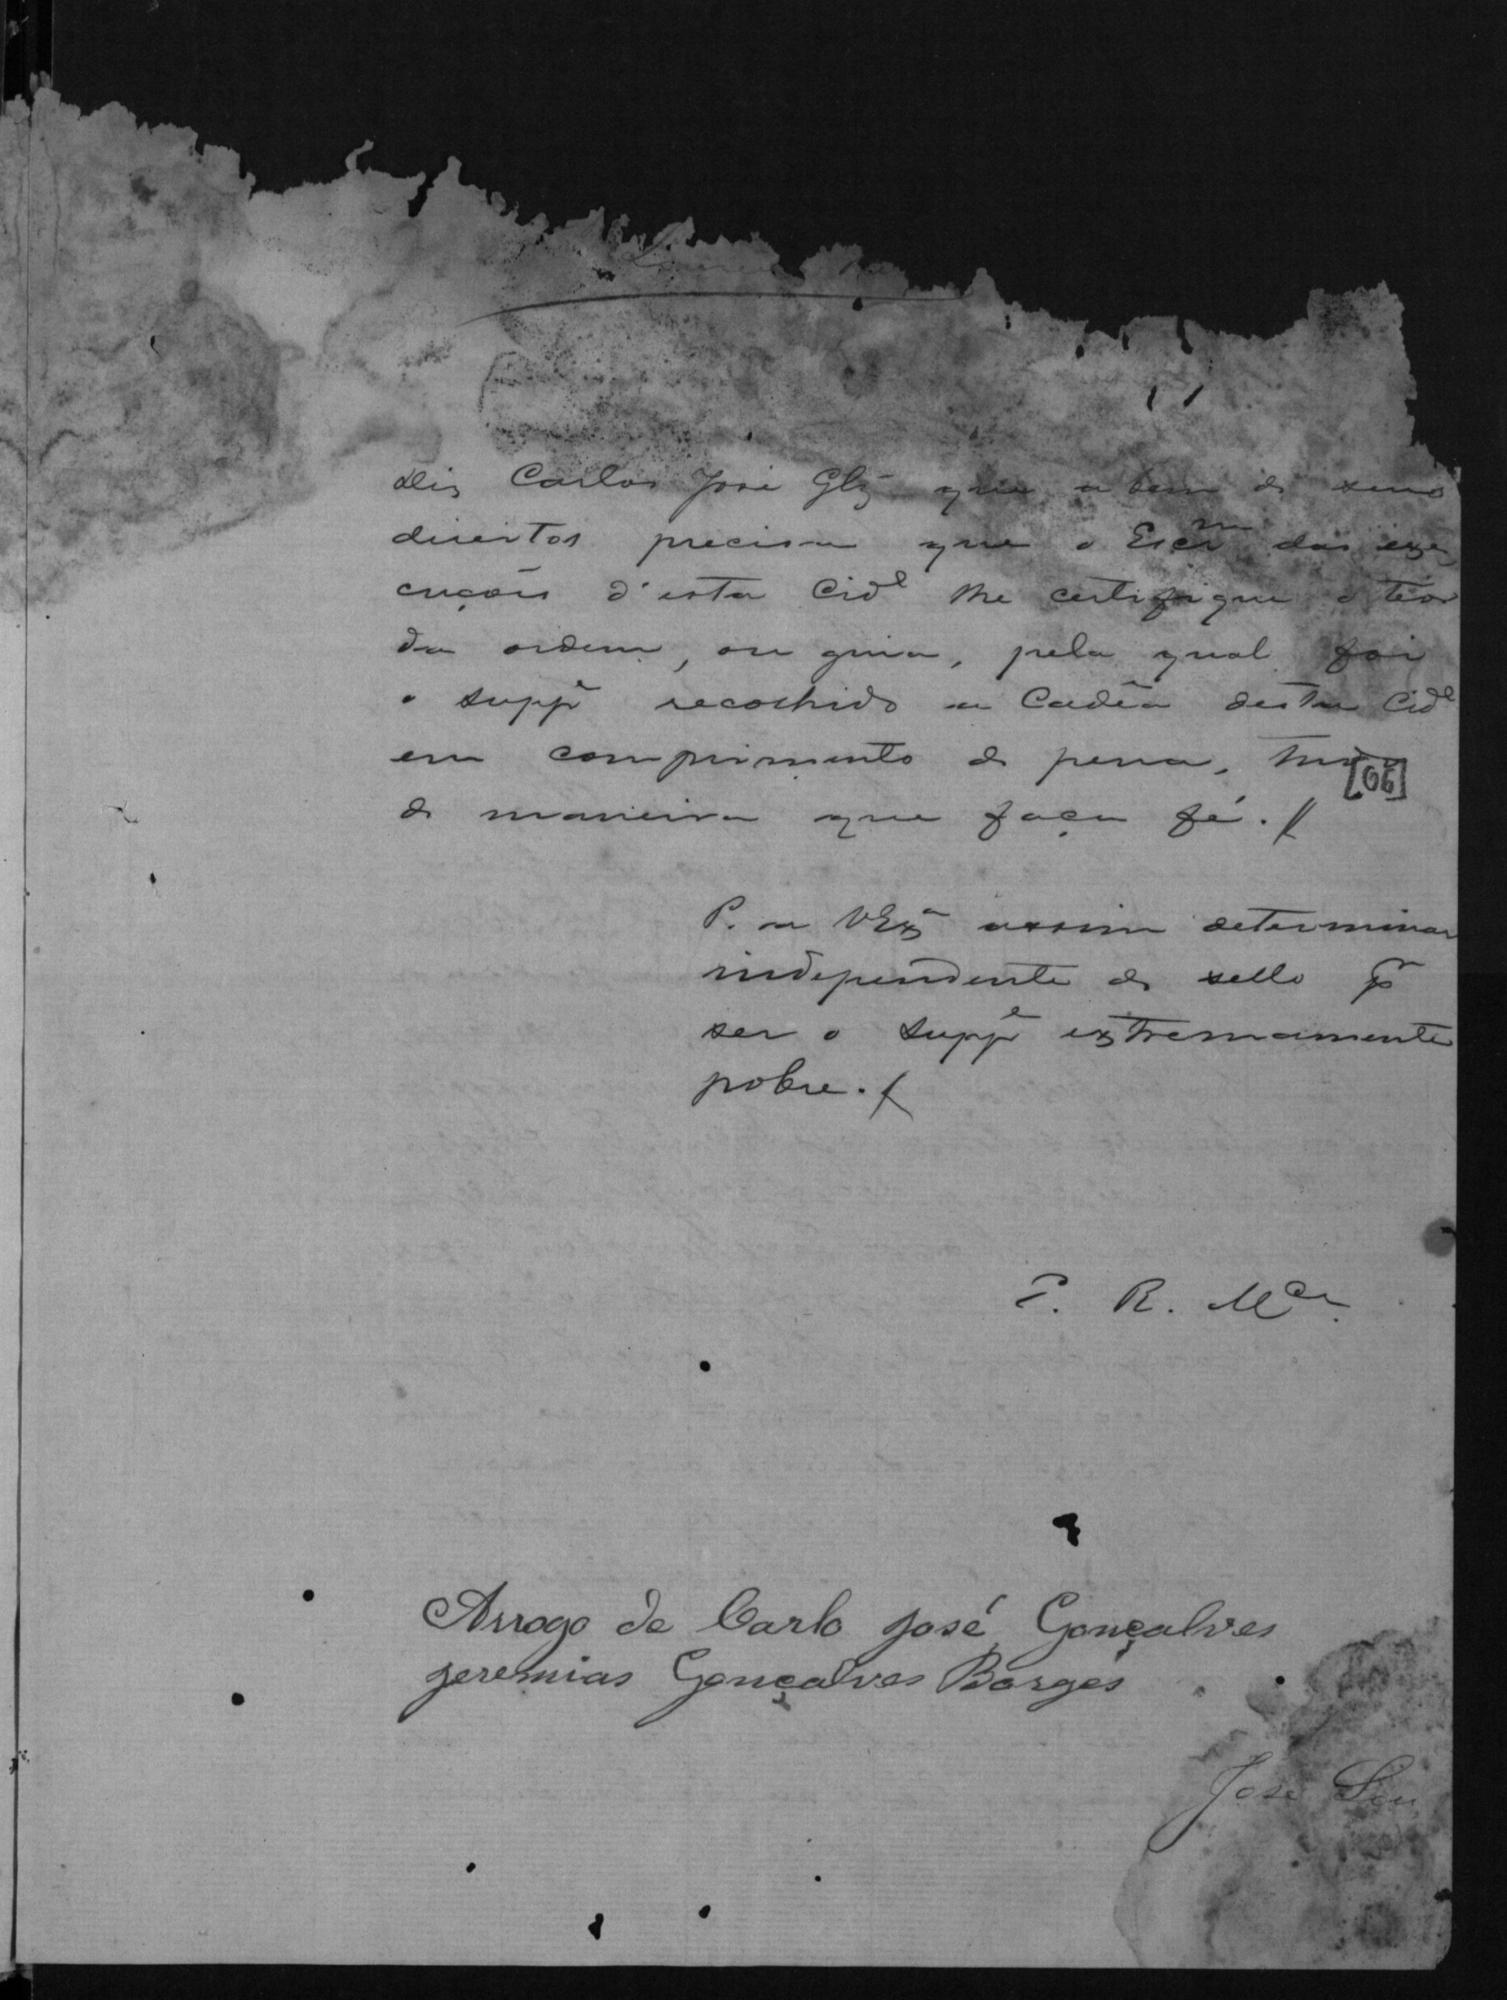 Diz Carlos José Glz que a bem de seus
direitos precisa que o Escr^m das exe
cuçoẽs d'esta Cid^e lhe certifique o teor
da ordem, ou guia, pela qual foi
o supp^e recolhido a Cadêa desta Cid^e
em comprimento de pena, tudo
[06]
de maneira que faça fé.
P. a VEx^a assim determinar
independente de sello pr
ser o supp^e extremamente
pobre.
E. R. M^ce.
Arrogo de Carlo José Gonçalves
Jeremias Gonçalves Borges
José